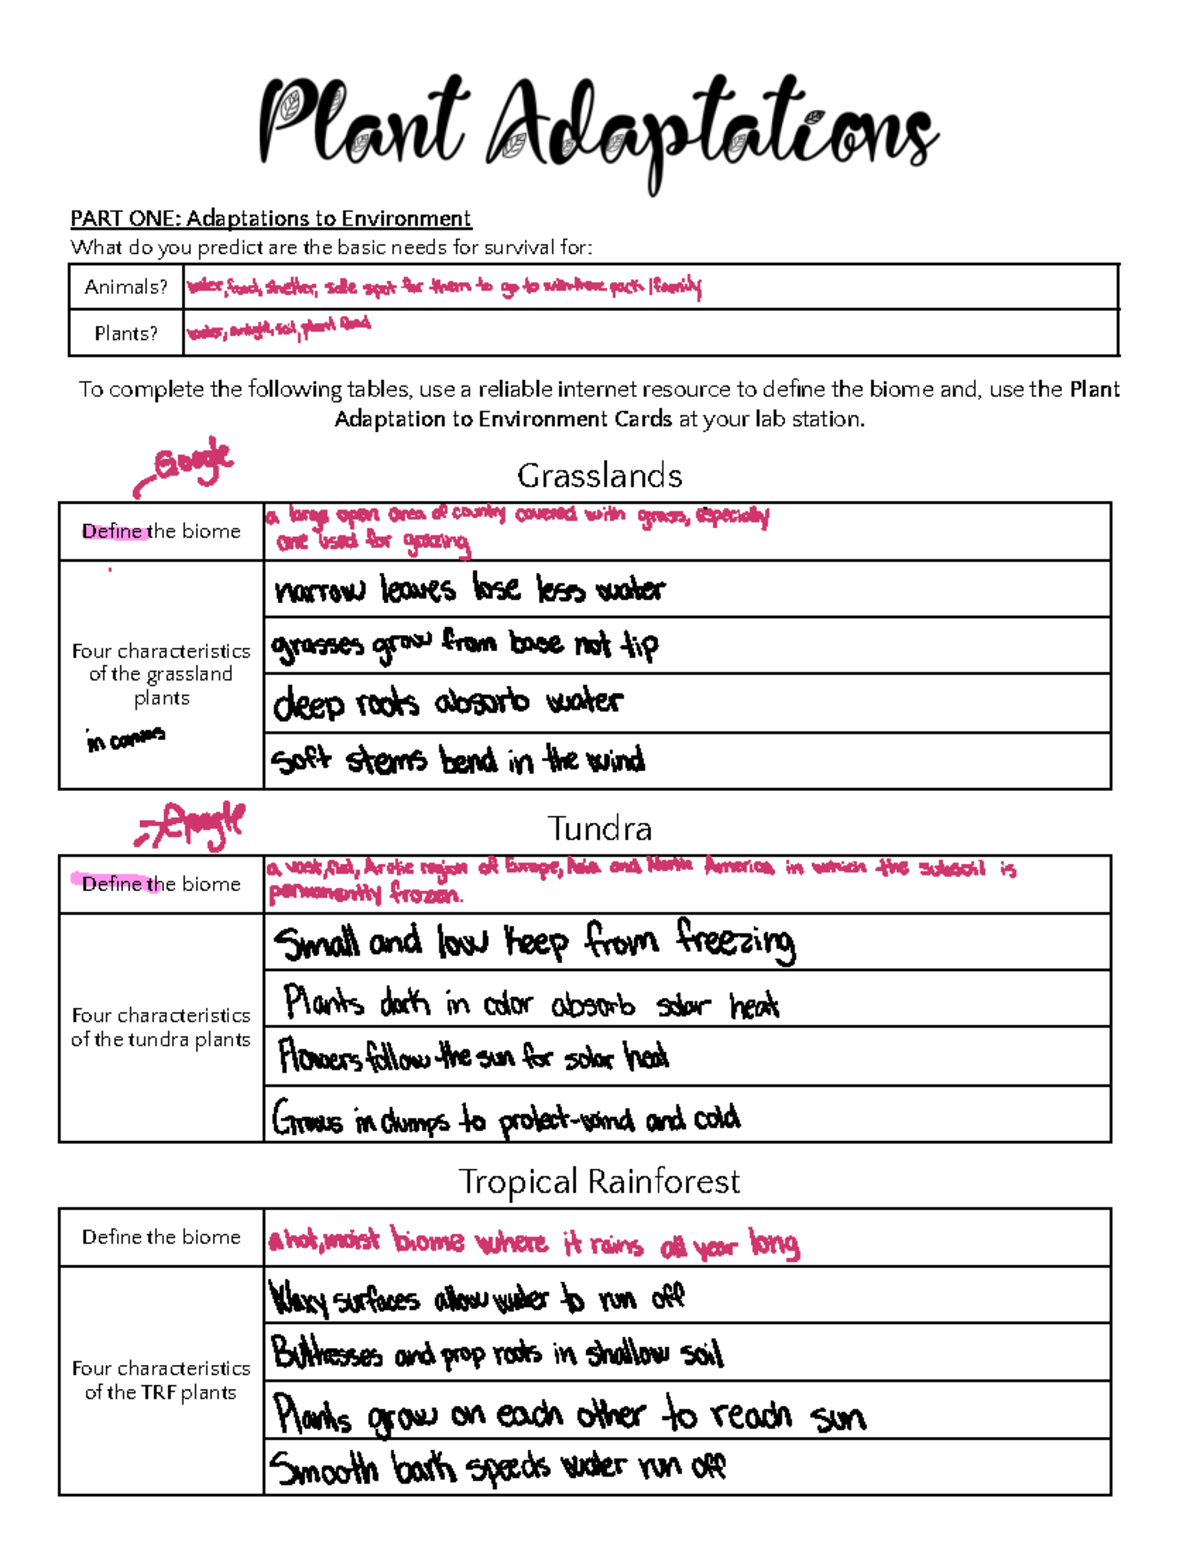 Plant Adaptations
PART ONE: Adaptations to Environment
What do you predict are the basic needs for survival for:
Animals?
water, food, shelter, safe spot for them to go to with there pack / family
Plants?
water, sunlight, soil, plant food
To complete the following tables, use a reliable internet resource to define the biome and, use the Plant
Adaptation to Environment Cards at your lab station.
Google
Grasslands
Define the biome
a large open area of country covered with grass, especially
one used for grazing
Four characteristics
of the grassland
plants
in canvas
narrow leaves lose less water
grasses grow from base not tip
deep roots absorb water
soft stems bend in the wind
Google
Tundra
Define the biome
a vast, flat, Arctic region of Europe, Asia and North America in which the subsoil is
permanently frozen.
Four characteristics
of the tundra plants
Small and low keep from freezing
Plants dark in color absorb solar heat
Flowers follow the sun for solar heat
Grows in clumps to protect-wind and cold
Tropical Rainforest
Define the biome
a hot, moist biome where it rains all year long
Four characteristics
of the TRF plants
Waxy surfaces allow water to run off
Buttresses and prop roots in shallow soil
Plants grow on each other to reach sun
Smooth bark speeds water run off